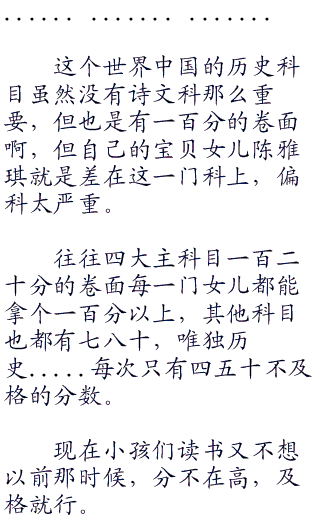 ...... ....... .......
这个世界中国的历史科
目虽然没有诗文科那么重
要，但也是有一百分的卷面
啊，但自己的宝贝女儿陈雅
琪就是差在这一门科上，偏
科太严重。
往往四大主科目一百二
十分的卷面每一门女儿都能
拿个一百分以上，其他科目
也都有七八十，唯独历
史.....每次只有四五十不及
格的分数。
现在小孩们读书又不想
以前那时候，分不在高，及
格就行。